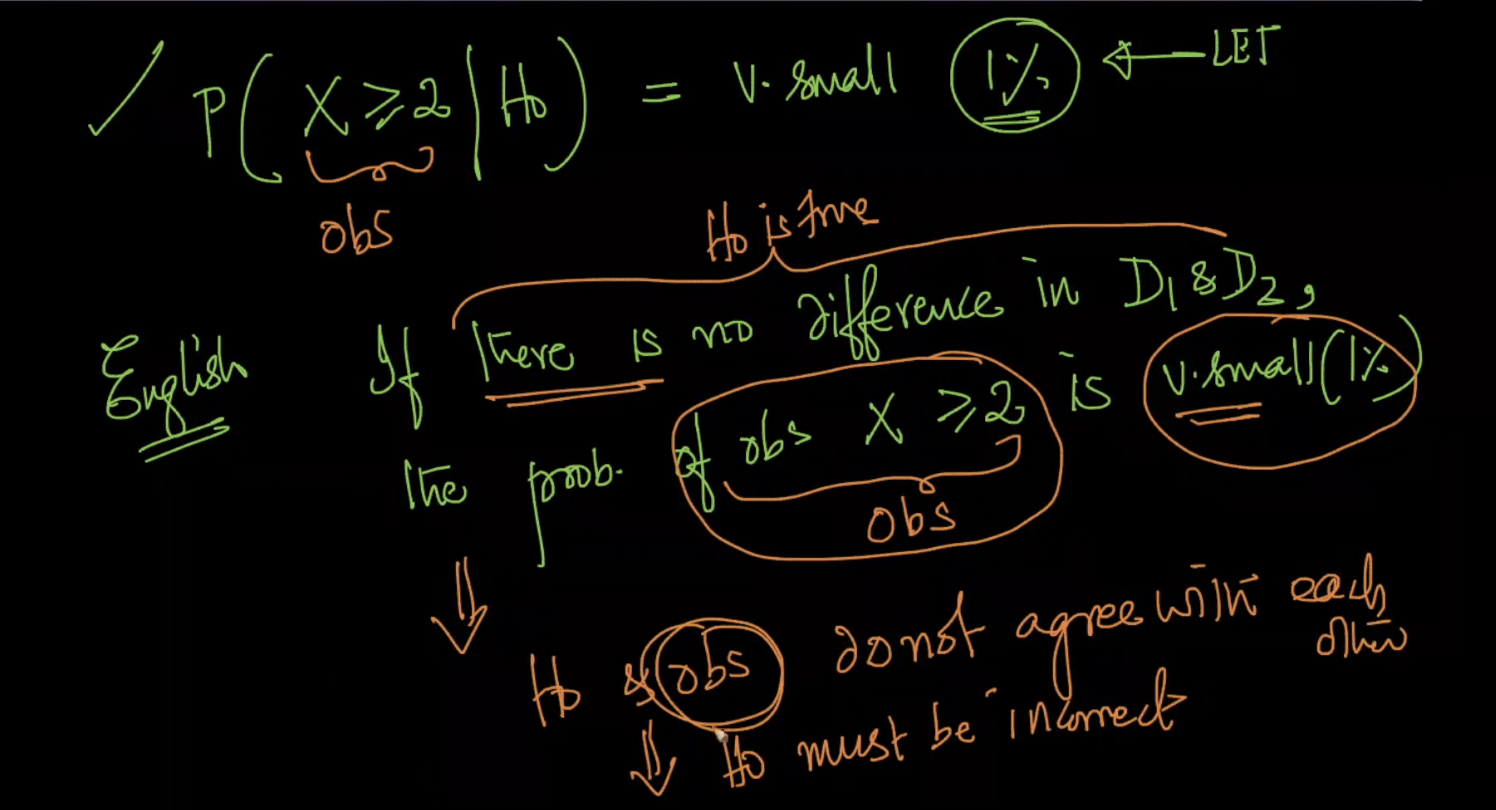 P(X ≥ 2 | H0) = v. small 1% ← LET
obs
H0 is true
English If there is no difference in D1 & D2,
the prob. of obs X ≥ 2 is v. small (1%)
obs
⇓
H0 & obs do not agree with each
other
⇓ H0 must be incorrect